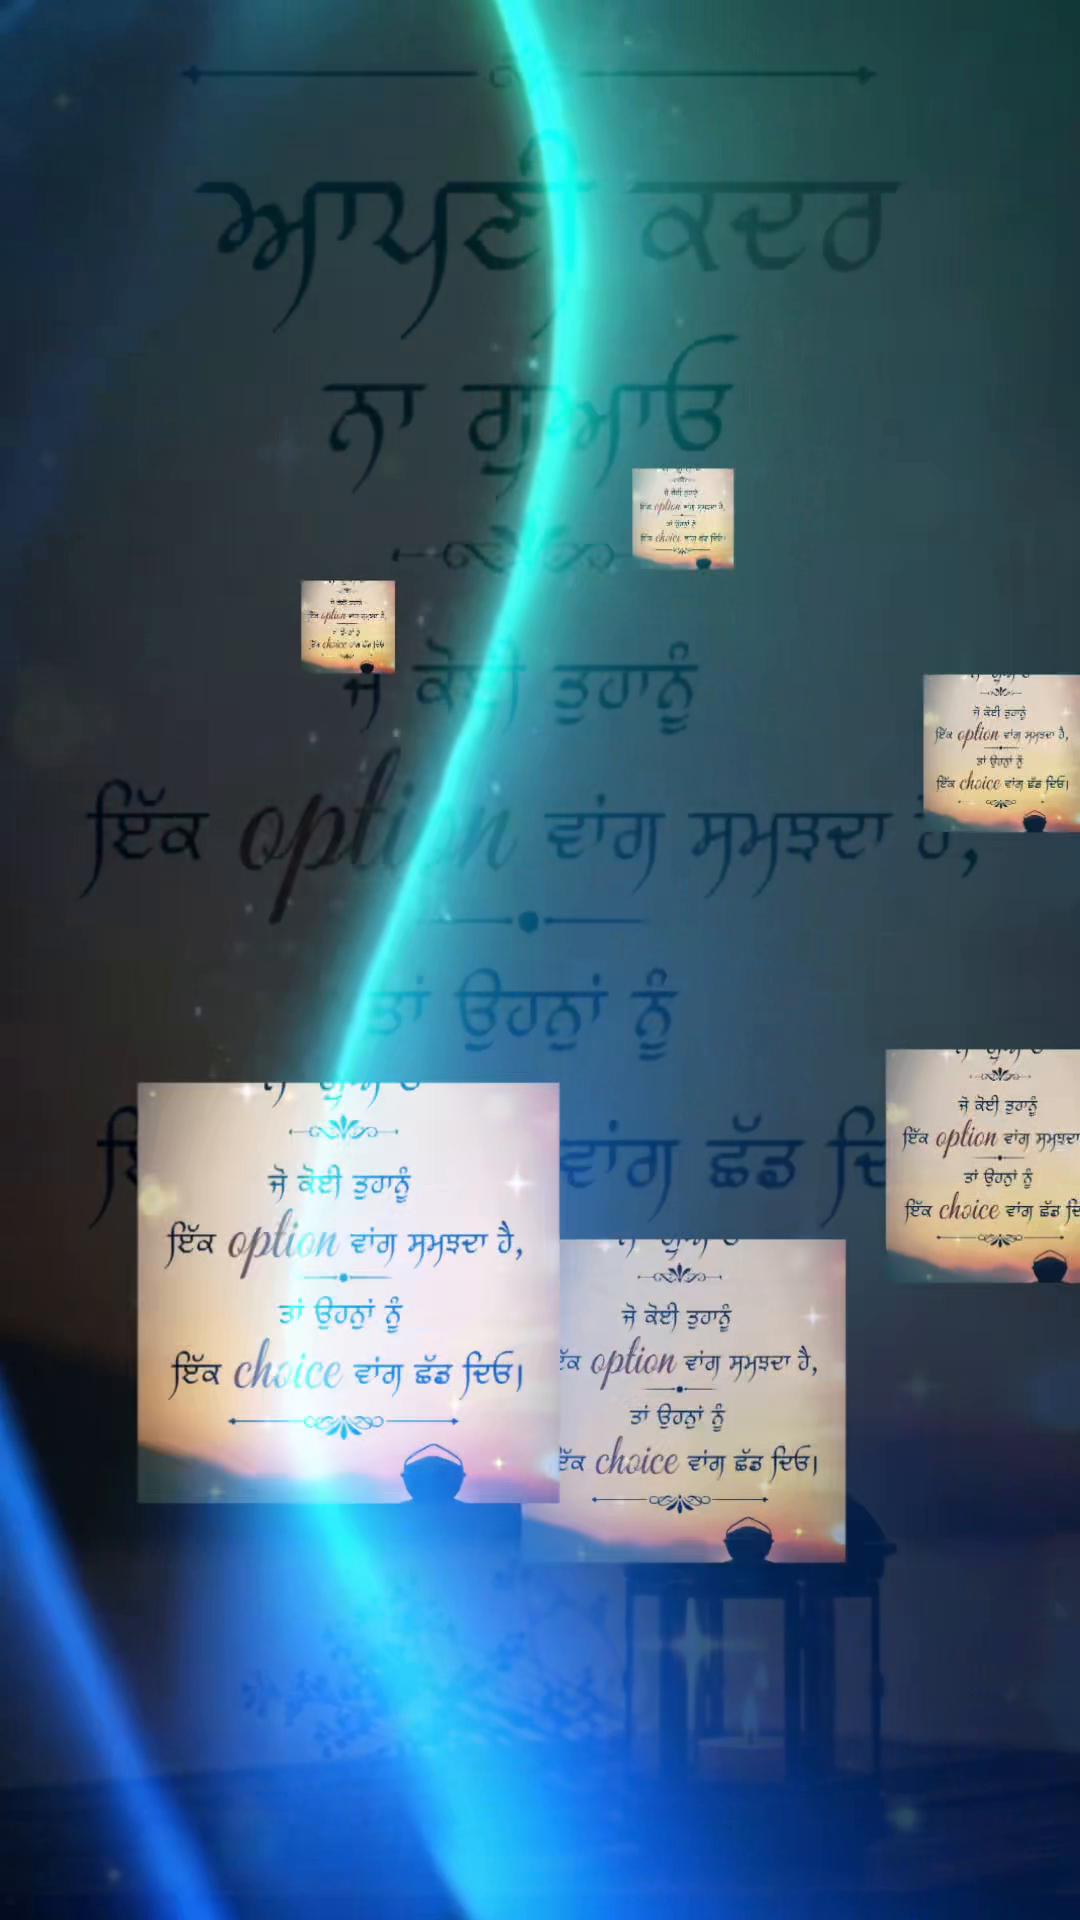 ਆਪਣੀ ਕਦਰ
ਨਾ ਗੁਆਓ
ਜੋ ਕੋਈ ਤੁਹਾਨੂੰ
ਇੱਕ option ਵਾਂਗ ਸਮਝਦਾ ਹੈ,
ਤਾਂ ਉਹਨਾਂ ਨੂੰ
ਵਾਂਗ ਛੱਡ
ਜੋ ਕੋਈ ਤੁਹਾਨੂੰ
ਇੱਕ option ਵਾਂਗ ਸਮਝਦਾ ਹੈ,
ਤਾਂ ਉਹਨਾਂ ਨੂੰ
ਇੱਕ choice ਵਾਂਗ ਛੱਡ ਦਿਓ।
ਜੋ ਕੋਈ ਤੁਹਾਨੂੰ
ਇੱਕ option ਵਾਂਗ ਸਮਝਦਾ ਹੈ,
ਤਾਂ ਉਹਨਾਂ ਨੂੰ
ਇੱਕ choice ਵਾਂਗ ਛੱਡ ਦਿਓ।
ਜੋ ਕੋਈ ਤੁਹਾਨੂੰ
ਇੱਕ option ਵਾਂਗ ਸਮਝਦਾ ਹੈ,
ਤਾਂ ਉਹਨਾਂ ਨੂੰ
ਇੱਕ choice ਵਾਂਗ ਛੱਡ ਦਿਓ।
ਜੋ ਕੋਈ ਤੁਹਾਨੂੰ
ਇੱਕ option ਵਾਂਗ ਸਮਝਦਾ
ਤਾਂ ਉਹਨਾਂ ਨੂੰ
ਇੱਕ choice ਵਾਂਗ ਛੱਡ
ਜੋ ਕੋਈ ਤੁਹਾਨੂੰ
ਇੱਕ option ਵਾਂਗ ਸਮਝਦਾ ਹੈ,
ਤਾਂ ਉਹਨਾਂ ਨੂੰ
ਇੱਕ choice ਵਾਂਗ ਛੱਡ ਦਿਓ।
ਜੋ ਕੋਈ ਤੁਹਾਨੂੰ
option ਵਾਂਗ ਸਮਝਦਾ ਹੈ,
ਤਾਂ ਉਹਨਾਂ ਨੂੰ
choice ਵਾਂਗ ਛੱਡ ਦਿਓ।